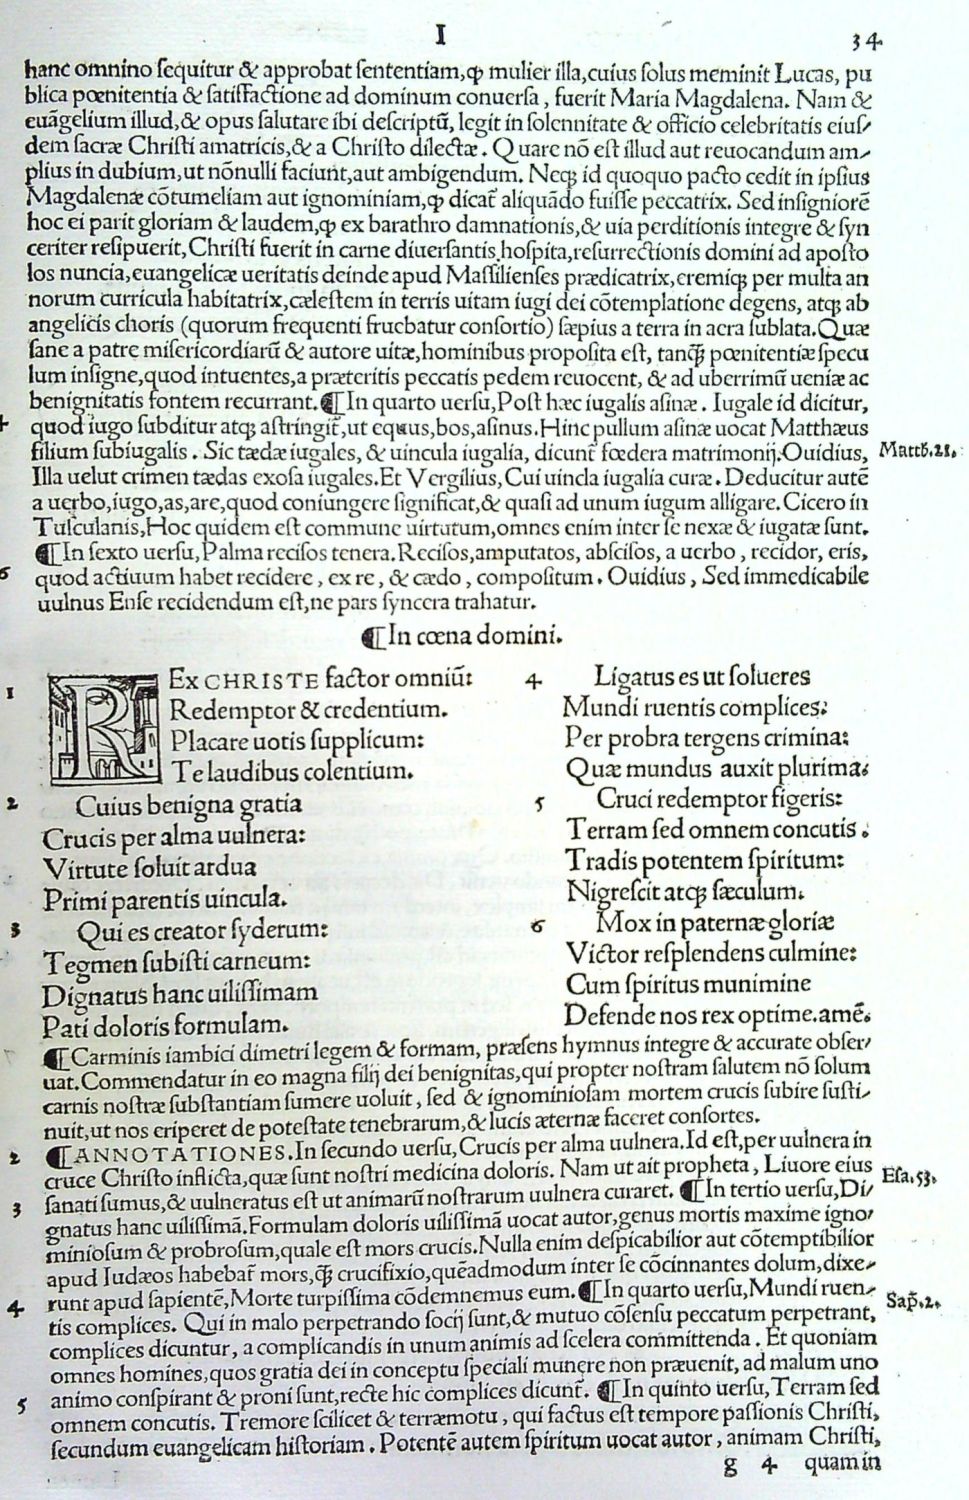 I 34
hanc omnino ſequitur & approbat ſententiam,ꝙ mulier illa,cuius ſolus meminit Lucas, pu
blica pœnitentia & ſatiſfactione ad dominum conuerſa , fuerit Maria Magdalena. Nam &
euãgelium illud,& opus ſalutare ibi deſcriptũ, legit in ſolennitate & officio celebritatis eiuſ/
dem ſacræ Chriſti amatricis,& a Chriſto dilectæ. Quare nõ eſt illud aut reuocandum am/
plius in dubium,ut nõnulli faciunt,aut ambigendum. Neqꝫ id quoquo pacto cedit in ipſius
Magdalenæ cõtumeliam aut ignominiam,ꝙ dicat᷑ aliquãdo fuiſſe peccatrix. Sed inſigniorẽ
hoc ei parit gloriam & laudem,ꝙ ex barathro damnationis,& uia perditionis integre & ſyn
ceriter reſipuerit,Chriſti fuerit in carne diuerſantis hoſpita,reſurrectionis domini ad apoſto
los nuncia,euangelicæ ueritatis deinde apud Maſſilienſes prædicatrix,eremiqꝫ per multa an
norum curricula habitatrix,cæleſtem in terris uitam iugi dei cõtemplatione degens, atqꝫ ab
angelicis choris (quorum frequenti fruebatur conſortio) ſæpius a terra in aera ſublata.Quæ
ſane a patre miſericordiarũ & autore uitæ,hominibus propoſita eſt, tanꝗ̃ pœnitentiæ ſpecu
lum inſigne,quod intuentes,a præteritis peccatis pedem reuocent, & ad uberrimũ ueniæ ac
benignitatis fontem recurrant.¶In quarto uerſu,Poſt hæc iugalis aſinæ. Iugale id dicitur,
quod iugo ſubditur atqꝫ aſtringit᷑,ut equus,bos,aſinus.Hinc pullum aſinæ uocat Matthæus
filium ſubiugalis. Sic tædæ iugales, & uincula iugalia, dicunt᷑ fœdera matrimonij.Ouidius, Matth̃.21.
Illa uelut crimen tædas exoſa iugales.Et Vergilius, Cui uincla iugalia curæ. Deducitur autẽ
a uerbo,iugo,as,are,quod coniungere ſignificat,& quaſi ad unum iugum alligare.Cicero in
Tuſculanis,Hoc quidem eſt commune uirtutum,omnes enim inter ſe nexæ & iugatæ ſunt.
¶In ſexto uerſu,Palma reciſos tenera.Reciſos,amputatos, abſciſos, a uerbo , recidor, eris,
6 quod actiuum habet recidere , ex re , & cædo , compoſitum. Ouidius , Sed immedicabile
uulnus Enſe recidendum eſt,ne pars ſyncera trahatur.
¶In cœna domini.
1 REX CHRISTE factor omniũ:
Redemptor & credentium.
Placare uotis ſupplicum:
Te laudibus colentium.
2 Cuius benigna gratia
Crucis per alma uulnera:
Virtute ſoluit ardua
Primi parentis uincula.
3 Qui es creator ſyderum:
Tegmen ſubiſti carneum:
Dignatus hanc uiliſſimam
Pati doloris formulam.
4 Ligatus es ut ſolueres
Mundi ruentis complices:
Per probra tergens crimina:
Quæ mundus auxit plurima:
5 Cruci redemptor figeris:
Terram ſed omnem concutis .
Tradis potentem ſpiritum:
Nigreſcit atqꝫ ſæculum.
6 Mox in paternæ gloriæ
Victor reſplendens culmine:
Cum ſpiritus munimine
Defende nos rex optime.amẽ.
¶Carminis iambici dimetri legem & formam, præſens hymnus integre & accurate obſer/
uat.Commendatur in eo magna filij dei benignitas,qui propter noſtram ſalutem nõ ſolum
carnis noſtræ ſubſtantiam ſumere uoluit , ſed & ignominioſam mortem crucis ſubire ſuſti/
nuit,ut nos eriperet de poteſtate tenebrarum,& lucis æternæ faceret conſortes.
2 ¶ANNOTATIONES.In ſecundo uerſu,Crucis per alma uulnera.Id eſt,per uulnera in
cruce Chriſto inflicta,quæ ſunt noſtri medicina doloris. Nam ut ait propheta , Liuore eius Eſa.53.
3 ſanati ſumus,& uulneratus eſt ut animarũ noſtrarum uulnera curaret. ¶In tertio uerſu,Di/
gnatus hanc uiliſſimã.Formulam doloris uiliſſimã uocat autor,genus mortis maxime igno/
minioſum & probroſum,quale eſt mors crucis.Nulla enim deſpicabilior aut cõtemptibilior
apud Iudæos habebat᷑ mors,ꝗ̃ crucifixio,quẽadmodum inter ſe cõcinnantes dolum,dixe/
4 runt apud ſapientẽ,Morte turpiſſima cõdemnemus eum.¶In quarto uerſu,Mundi ruen/ Sap̃.2.
tis complices. Qui in malo perpetrando ſocij ſunt,& mutuo cõſenſu peccatum perpetrant,
complices dicuntur, a complicandis in unum animis ad ſcelera committenda. Et quoniam
omnes homines,quos gratia dei in conceptu ſpeciali munere non præuenit, ad malum uno
5 animo conſpirant & proni ſunt,recte hic complices dicunt᷑. ¶In quinto uerſu,Terram ſed
omnem concutis. Tremore ſcilicet & terræmotu , qui factus eſt tempore paſſionis Chriſti,
ſecundum euangelicam hiſtoriam. Potentẽ autem ſpiritum uocat autor, animam Chriſti,
g 4 quam in